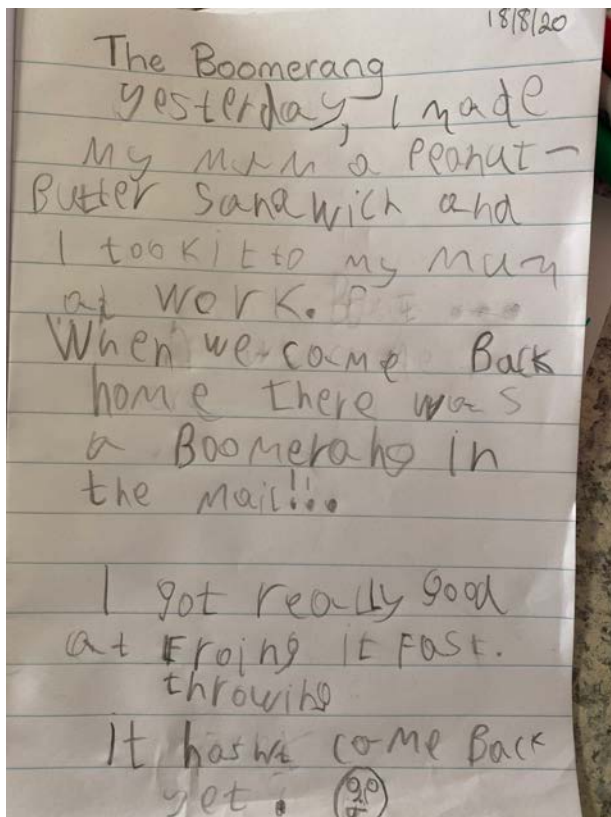 18/8/20
The Boomerang
yesterday, I made
My mum a Peanut-
Butter Sandwich and
I took it to my mum
at work.
When we came Back
home there was
a Boomerang in
the Mail!!!
I got really good
at Froing it Fast.
throwing
It hasnt come Back
yet!